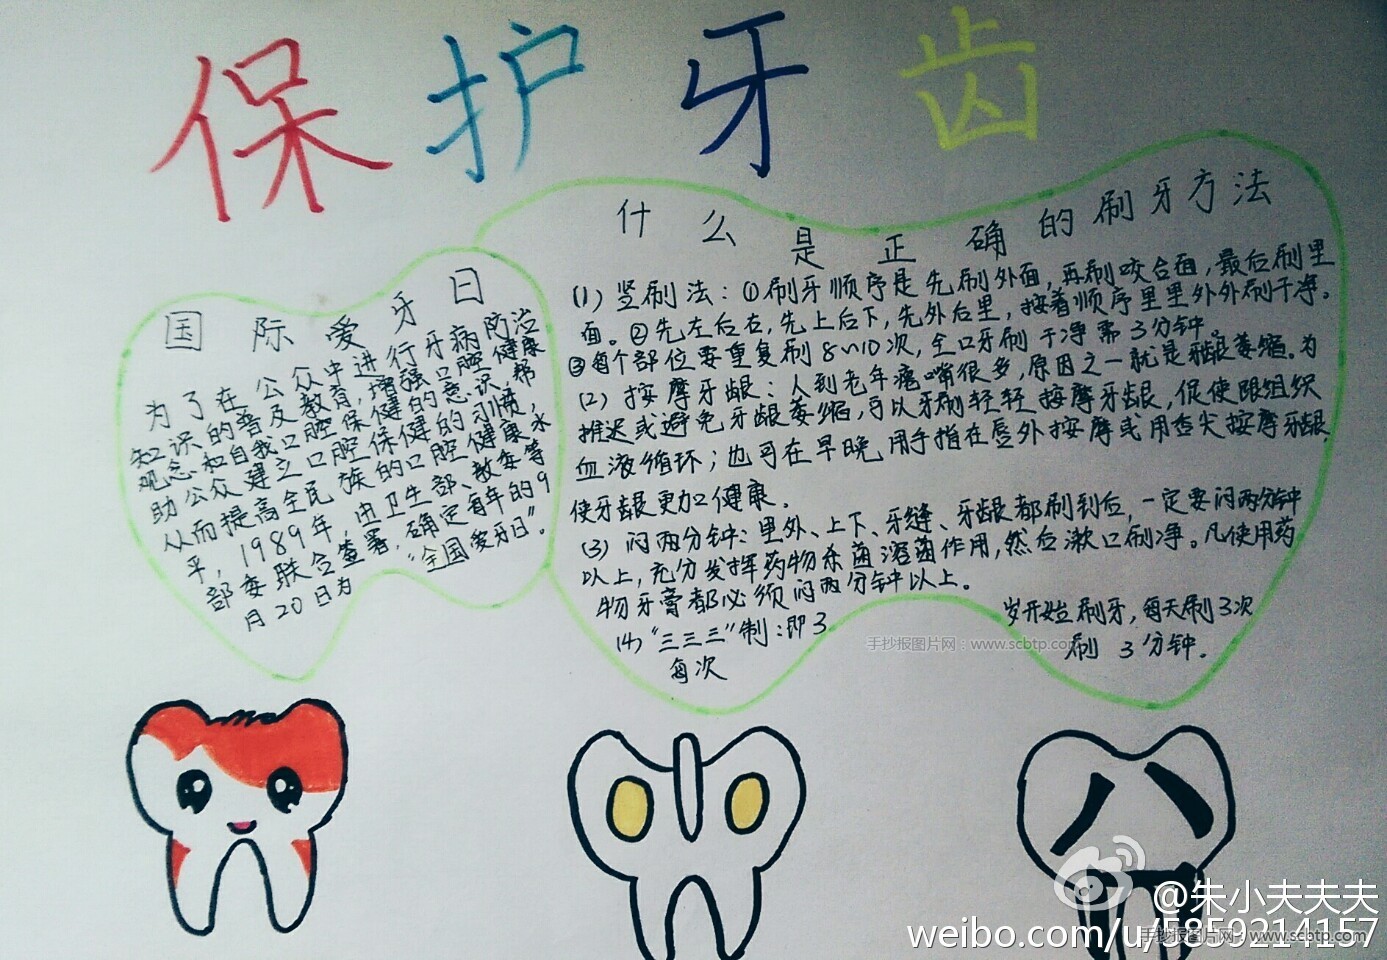 保护牙齿
国际爱牙日
为了在公众中进行牙病防治
知识的普及教育,增强口腔健康
观念和自我口腔保健的意识,帮
助公众建立口腔保健的习惯,
从而提高全民族的口腔健康水
平,1989年,由卫生部、教委等
部委联合签署,确定每年的9
月20日为“全国爱牙日”。
什么是正确的刷牙方法
(1) 竖刷法:①刷牙顺序是先刷外面,再刷咬合面,最后刷里
面。②先左后右,先上后下,先外后里,按着顺序里里外外刷干净。
③每个部位要重复刷8~10次,全口牙刷干净需3分钟。
(2) 按摩牙龈:人到老年瘪嘴很多,原因之一就是牙龈萎缩。为
推迟或避免牙龈萎缩,可以牙刷轻轻按摩牙龈,促使跟组织
血液循环;也可在早晚用手指在唇外按摩或用舌尖按摩牙龈,
使牙龈更加健康.
(3) 闷两分钟:里外、上下、牙缝、牙龈都刷到后,一定要闷两分钟
以上,充分发挥药物杀菌溶菌作用,然后漱口刷净。凡使用药
物牙膏都必须闷两分钟以上。
(4)“三三三”制:即3岁开始刷牙,每天刷3次
每次刷3分钟.
手抄报图片网:www.scbtp.com
@朱小夫夫夫
weibo.com/u/5859214157
手抄报图片网:www.scbtp.com